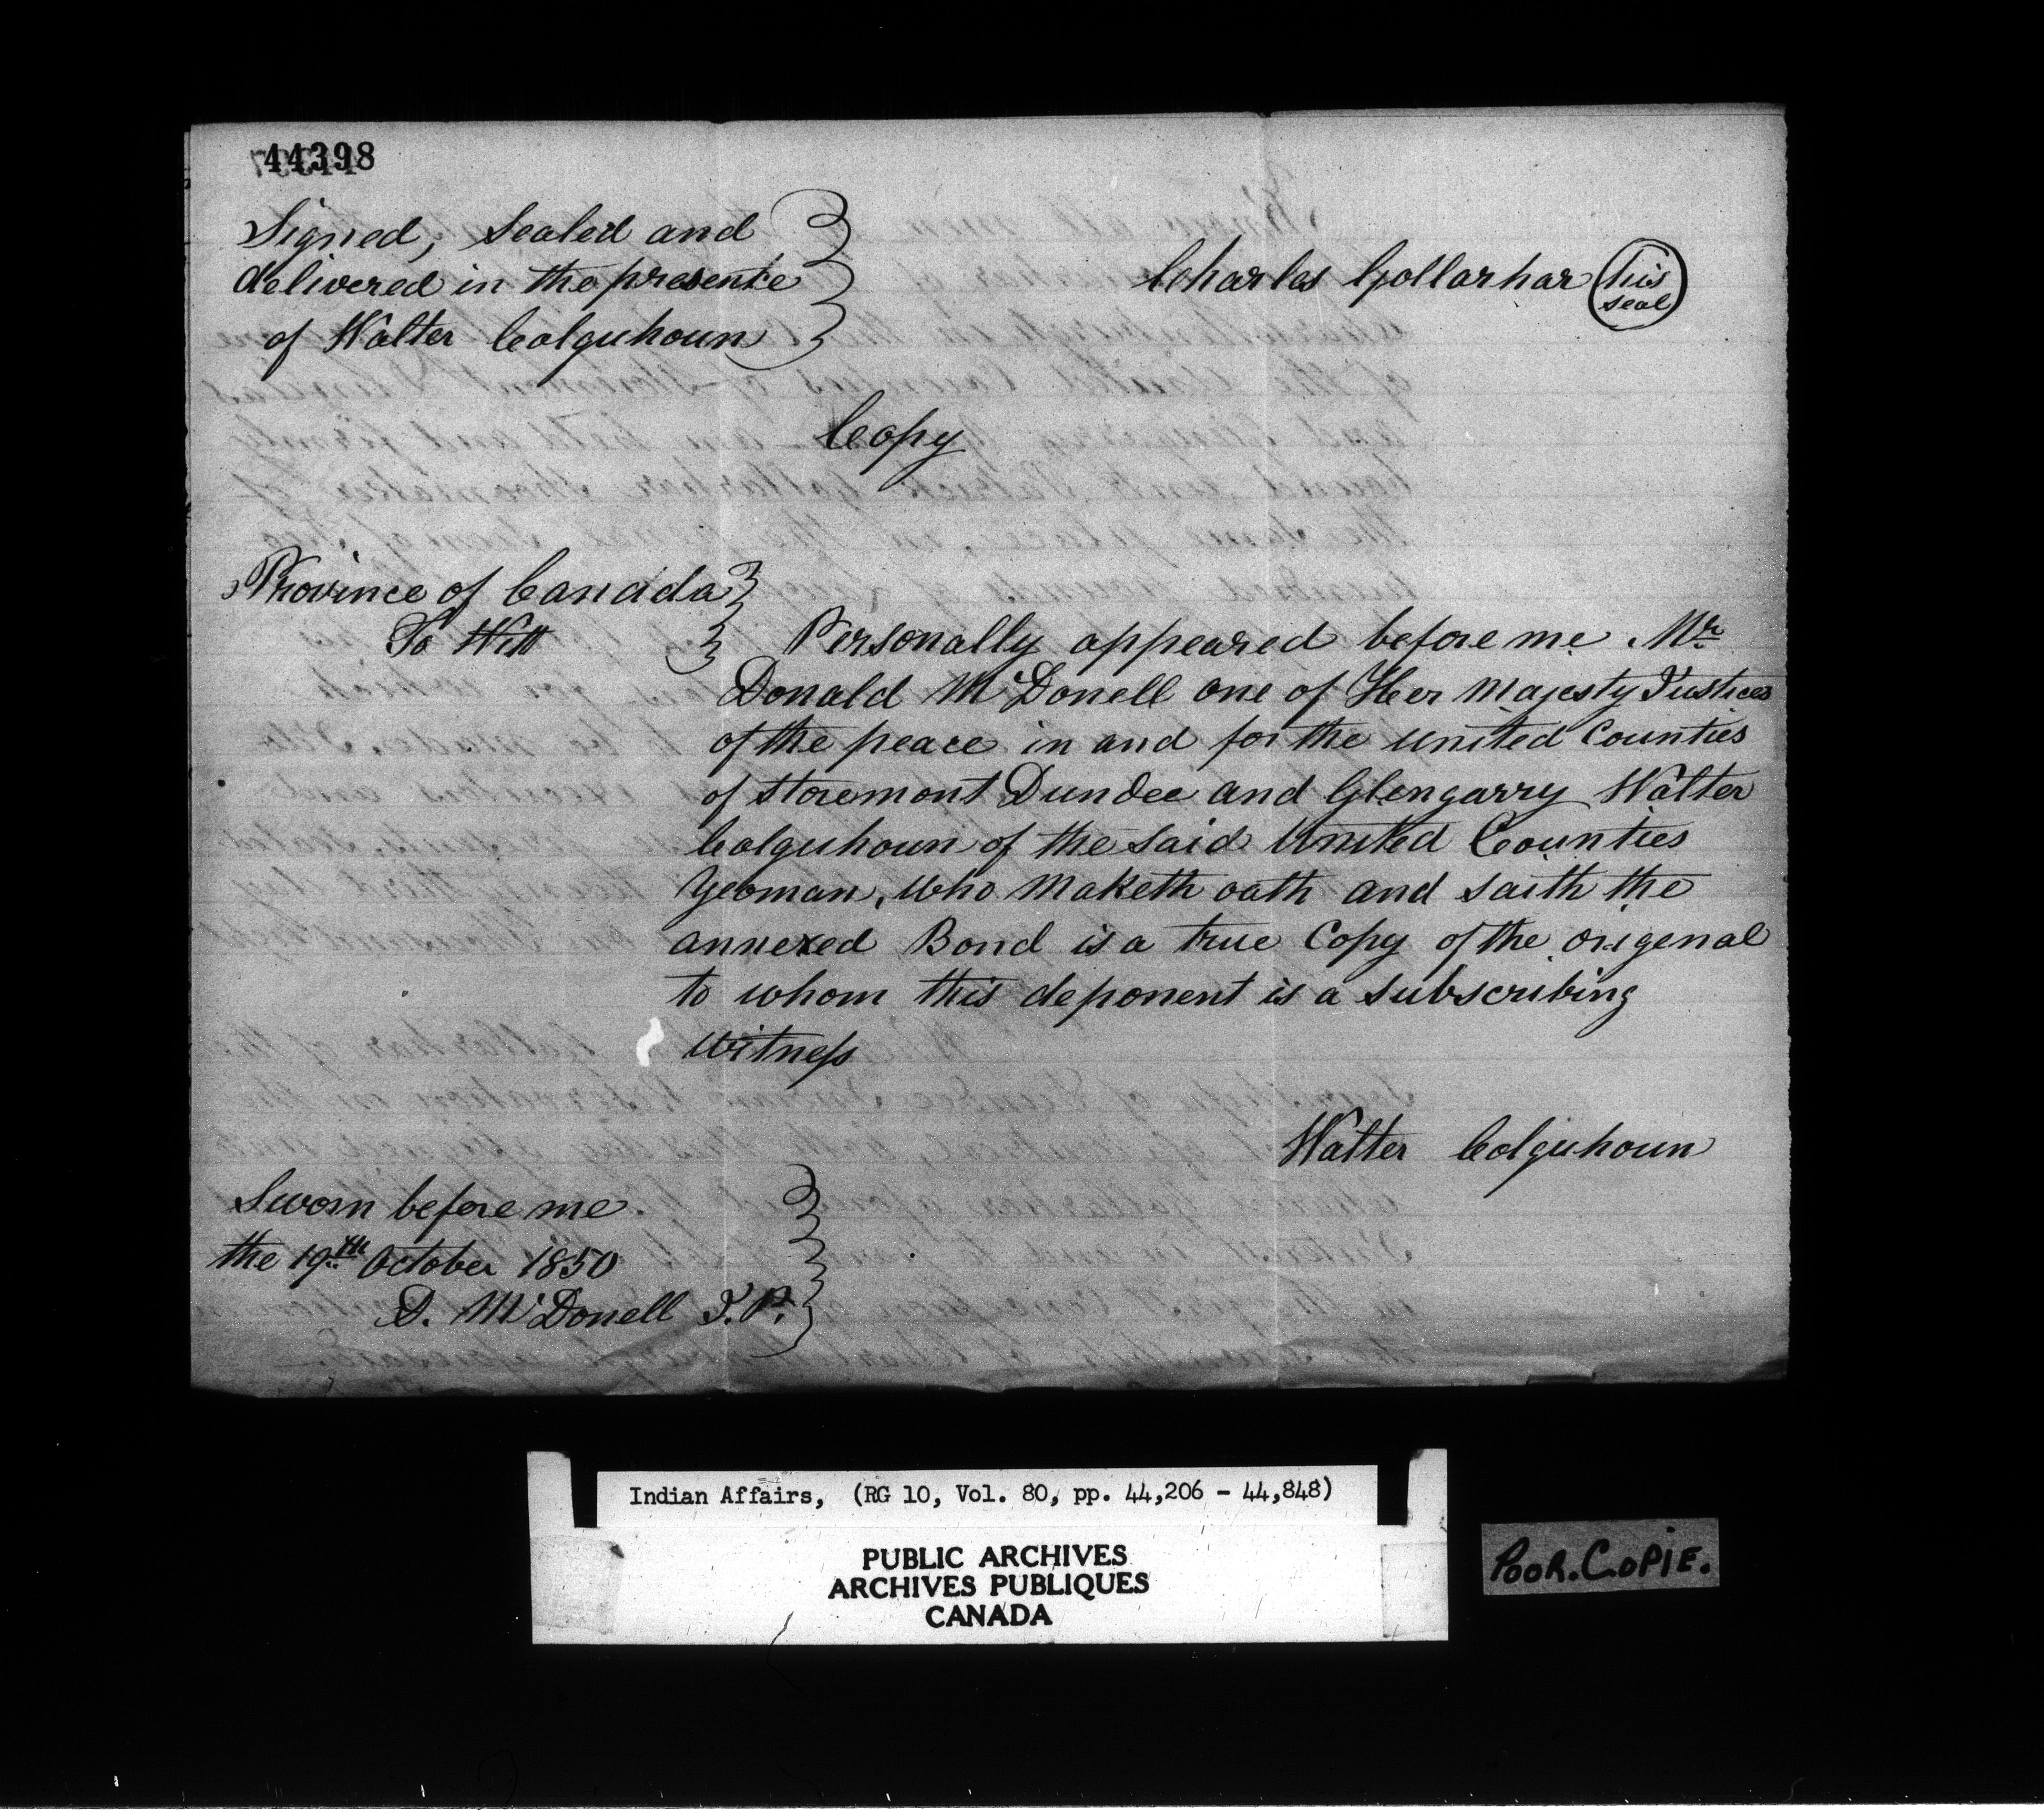 44398
Signed, Sealed and
delivered in the presence
of Walter Colquhoun
Charles Gollarhar his seal
Copy
Province of Canada
To Witt
Personally appeared before me Mr
Donald McDonell one of Her Majesty Justices
of the peace in and for the united Counties
of Storemont Dundee and Glengarry Walter
Colquhoun of the said United Counties
Yeoman, who Maketh oath and saith the
annexed Bond is a true Copy of the origenal
to whom this deponent is a subscribing
witness
Walter Colquhoun
Sworn before me
the 19th October 1850
D. McDonell J.P.
Indian Affairs, (RG 10, Vol. 80, pp. 44,206 - 44,848)
PUBLIC ARCHIVES
ARCHIVES PUBLIQUES
CANADA
POOR.COPIE.